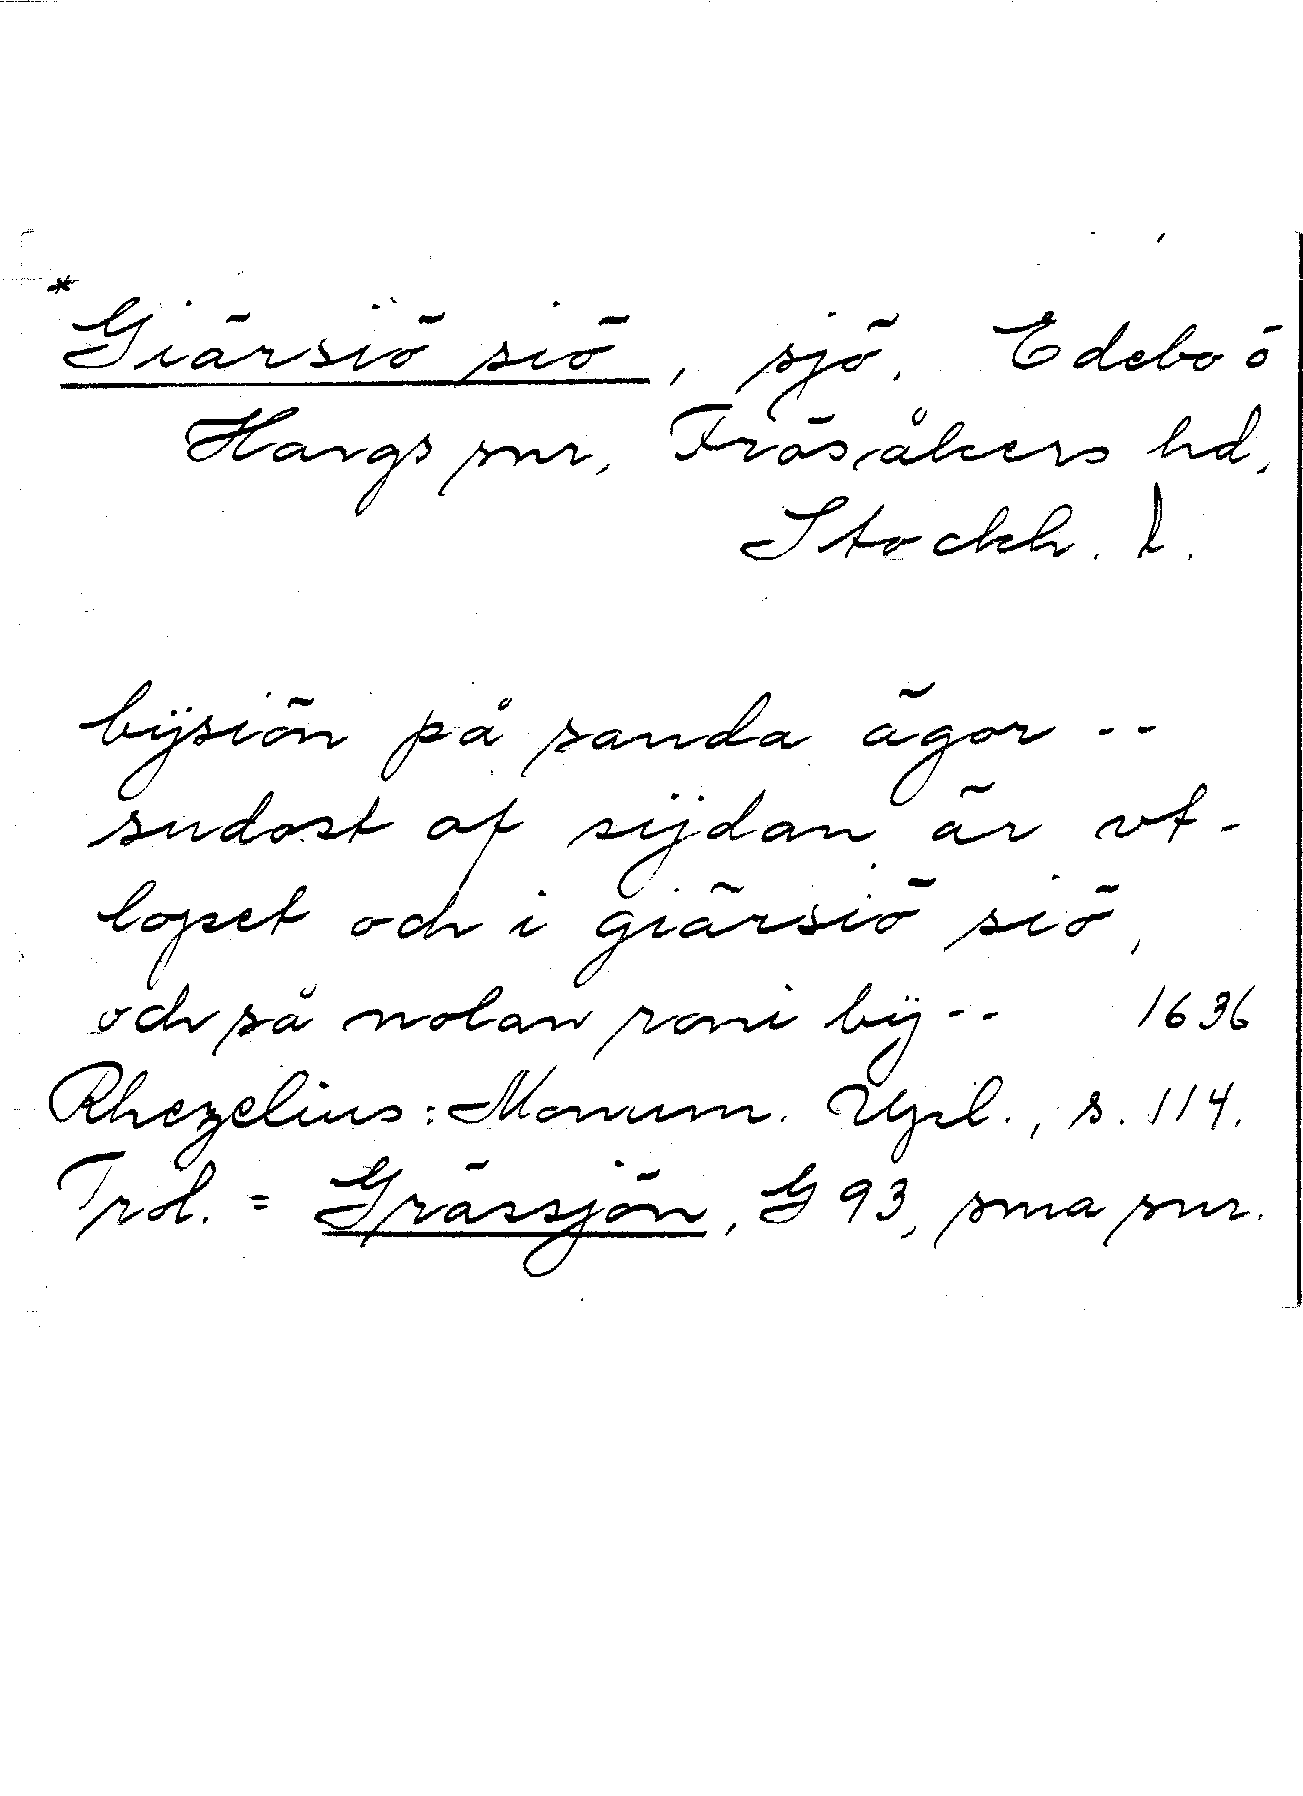 *
Giärsiö siö, sjö, Edebo o
Hargs snr, Frösåkers hd,
Stockh. l.
bÿsiön på sanda ägor --
sudost af sijdan är vt-
lopet och i giärsiö siö,
och så nolan roni bÿ-- 1636
Rhezelius: Monum. Upl., s. 114.
Trol. = Grässjön, G 93, sma snr.